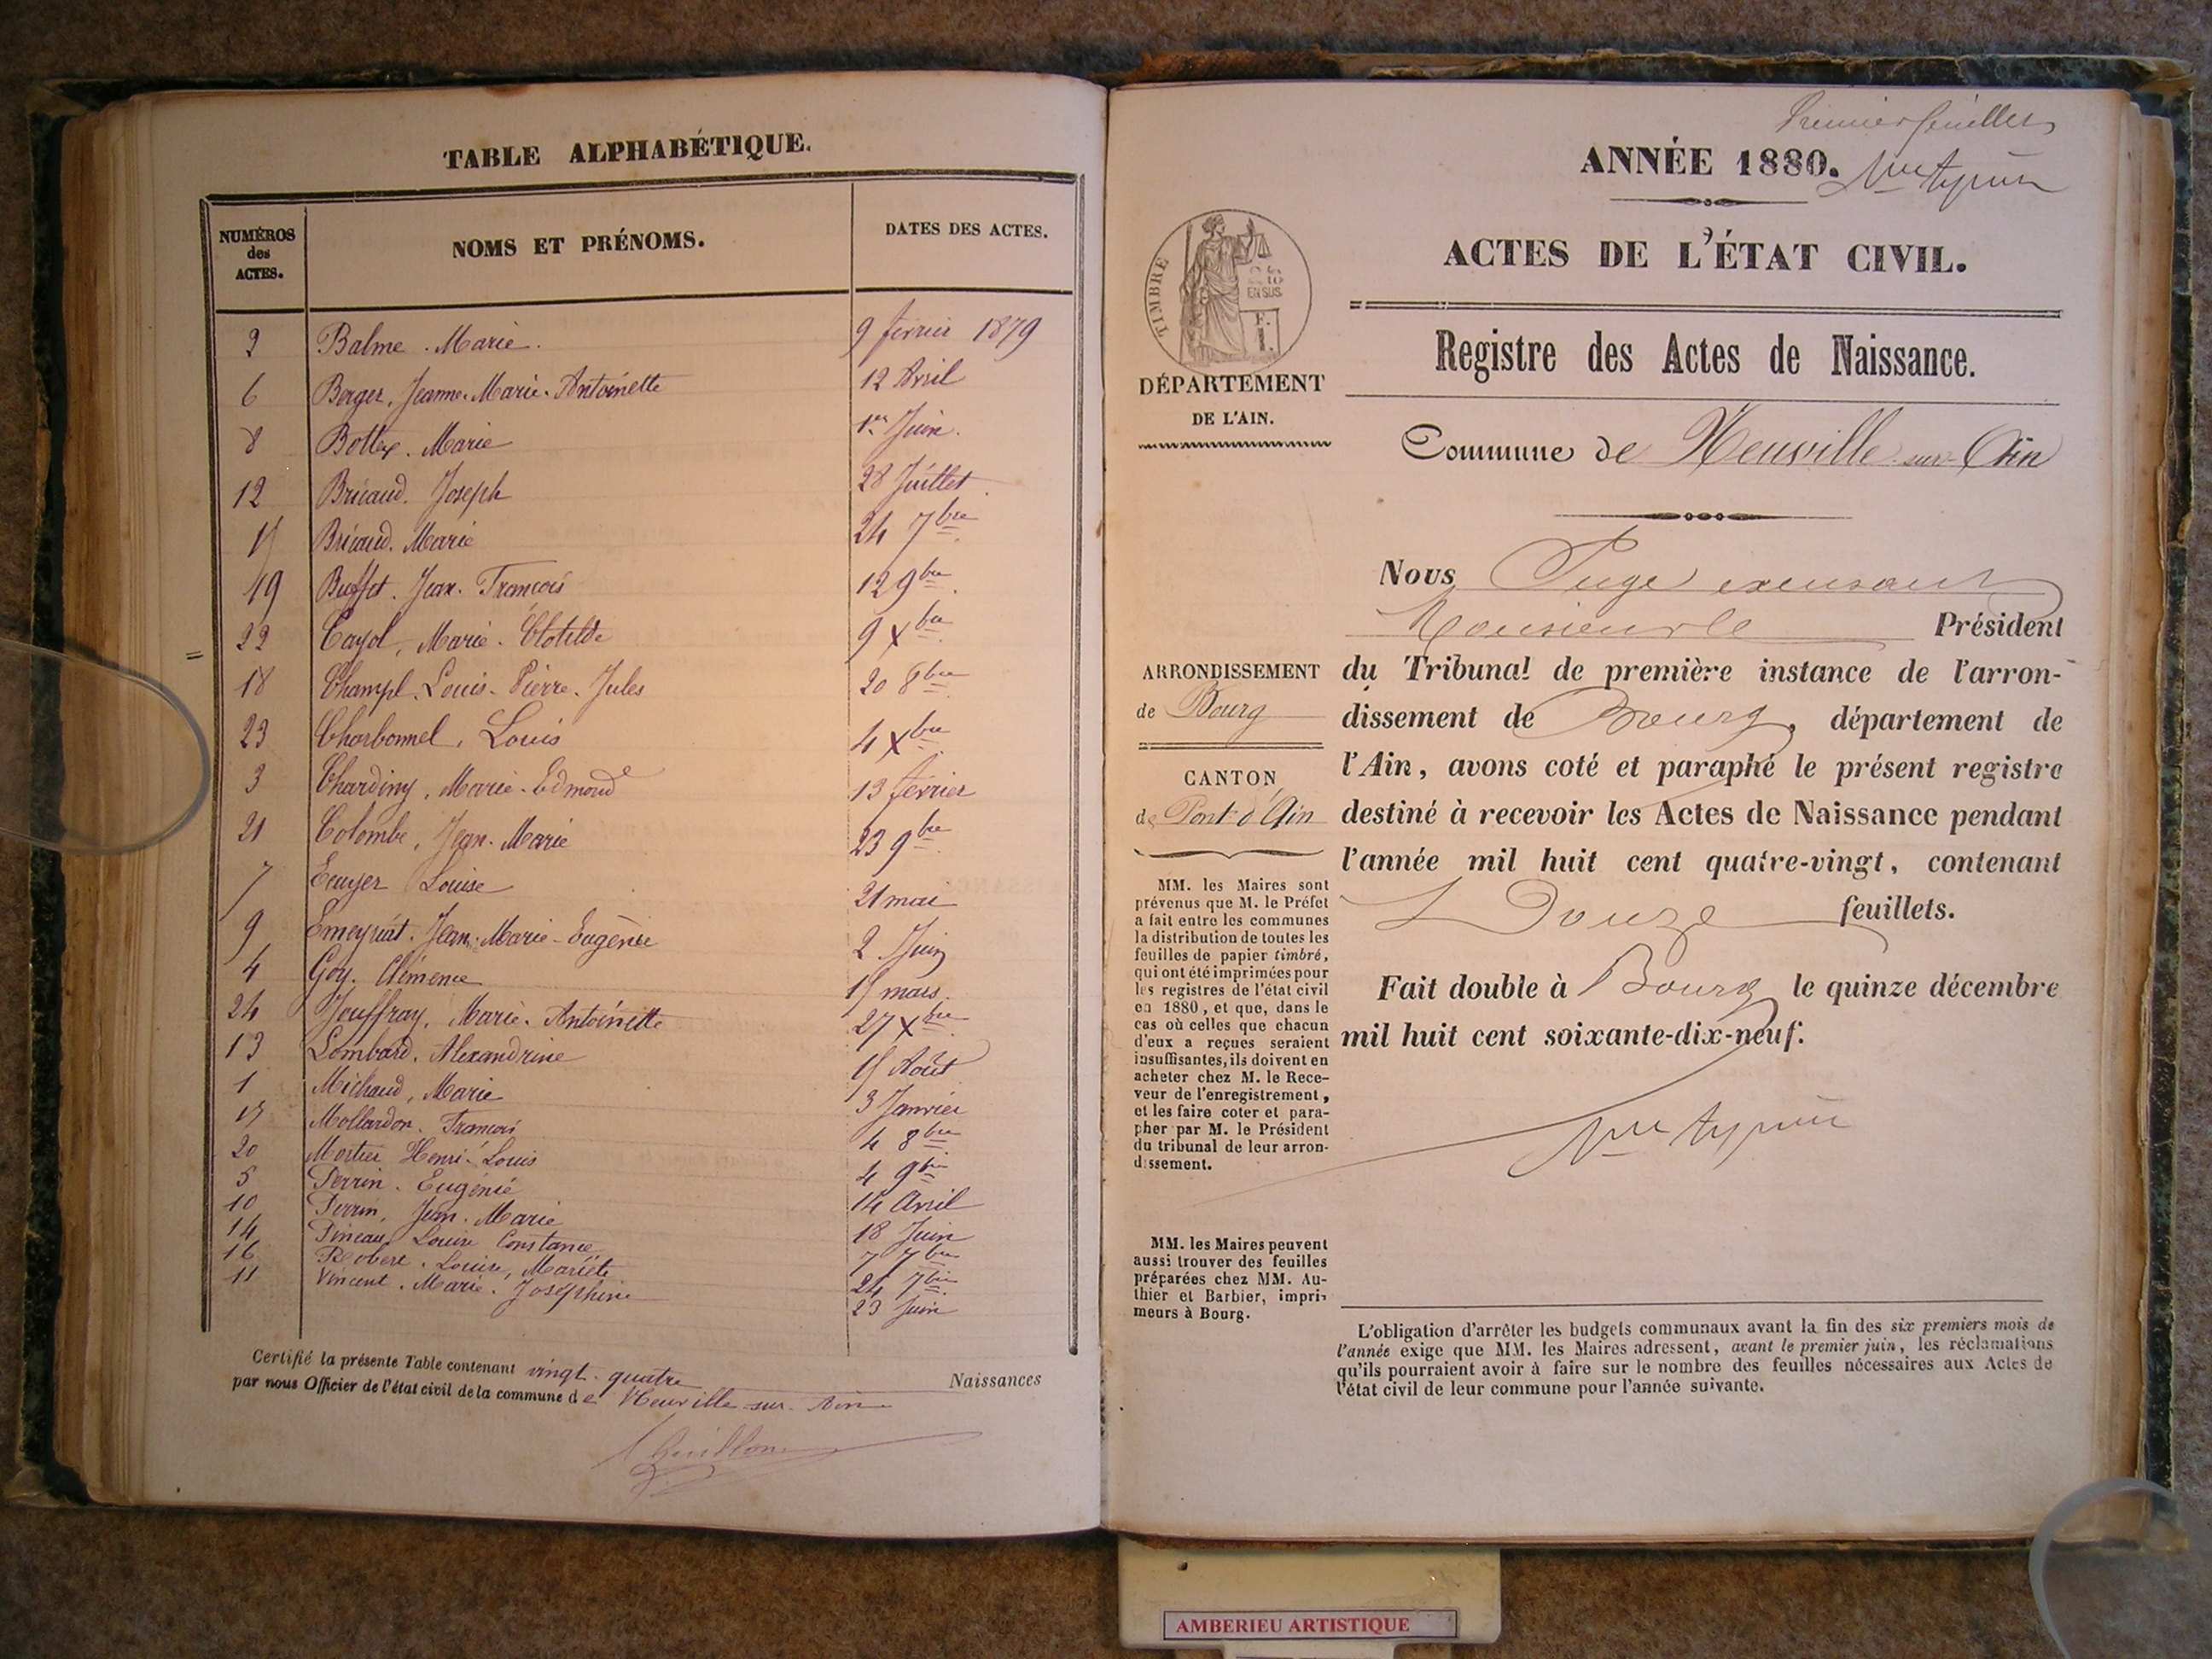 TABLE ALPHABÉTIQUE.
NUMÉROS des ACTES.
NOMS ET PRÉNOMS.
DATES DES ACTES.
2 Balme. Marie. 9 février 1879
6 Berger, Jeanne. Marie. Antoinette 12 Avril
8 Bottex. Marie 1er Juin.
12 Bricaud. Joseph 28 Juillet
15 Bricaud. Marie 24 7bre
19 Buffet. Jean. François 12 9bre
22 Cayol, Marie. Clotilde 9 Xbre
18 Champl. Louis. Pierre. Jules 20 8bre
23 Charbonnel, Louis 4 Xbre
3 Chardiny, Marie. Edmond 13 février
21 Colombe, Jean. Marie 23 9bre
7 Ecuyer Louise 21 mai
9 Emeyriat. Jean. Marie-Eugène 2 Juin
4 Goy. Clémence 15 mars
24 Jouffray, Marie. Antoinette 27 Xbre
13 Lombard. Alexandrine 15 Août
1 Michaud, Marie 3 Janvier
17 Mollardon. François 4 8bre
20 Mortier Henri-Louis 4 9bre
5 Perrin. Eugénie 14 Avril
10 Perrin, Jean. Marie 18 Juin
14 Pineau Louise Constance 7 7bre
16 Robert. Louise, Mariéte 24 7bre
11 Vincent. Marie. Joséphine 23 Juin
Certifié la présente Table contenant vingt-quatre Naissances
par nous Officier de l'état civil de la commune de Neuville-sur-Ain
Premier feuillet
ANNÉE 1880.
ACTES DE L'ÉTAT CIVIL.
Registre des Actes de Naissance.
TIMBRE
EN SUS
F.
1.
DÉPARTEMENT
DE L'AIN.
Commune de Neuville sur Ain
Nous Juge
Monsieur le Président
du Tribunal de première instance de l'arron-
dissement de Bourg, département de
l'Ain, avons coté et paraphé le présent registre
destiné à recevoir les Actes de Naissance pendant
l'année mil huit cent quatre-vingt, contenant
Douze feuillets.
Fait double à Bourg le quinze décembre
mil huit cent soixante-dix-neuf.
ARRONDISSEMENT
de Bourg
CANTON
de Pont-d'Ain
MM. les Maires sont
prévenus que M. le Préfet
a fait entre les communes
la distribution de toutes les
feuilles de papier timbré,
qui ont été imprimées pour
les registres de l'état civil
en 1880, et que, dans le
cas où celles que chacun
d'eux a reçues seraient
insuffisantes, ils doivent en
acheter chez M. le Rece-
veur de l'enregistrement,
et les faire coter et para-
pher par M. le Président
du tribunal de leur arron-
dissement.
MM. les Maires peuvent
aussi trouver des feuilles
préparées chez MM. Au-
thier et Barbier, impri-
meurs à Bourg.
L'obligation d'arrêter les budgets communaux avant la fin des six premiers mois de
l'année exige que MM. les Maires adressent, avant le premier juin, les réclamations
qu'ils pourraient avoir à faire sur le nombre des feuilles nécessaires aux Actes de
l'état civil de leur commune pour l'année suivante.
AMBERIEU ARTISTIQUE